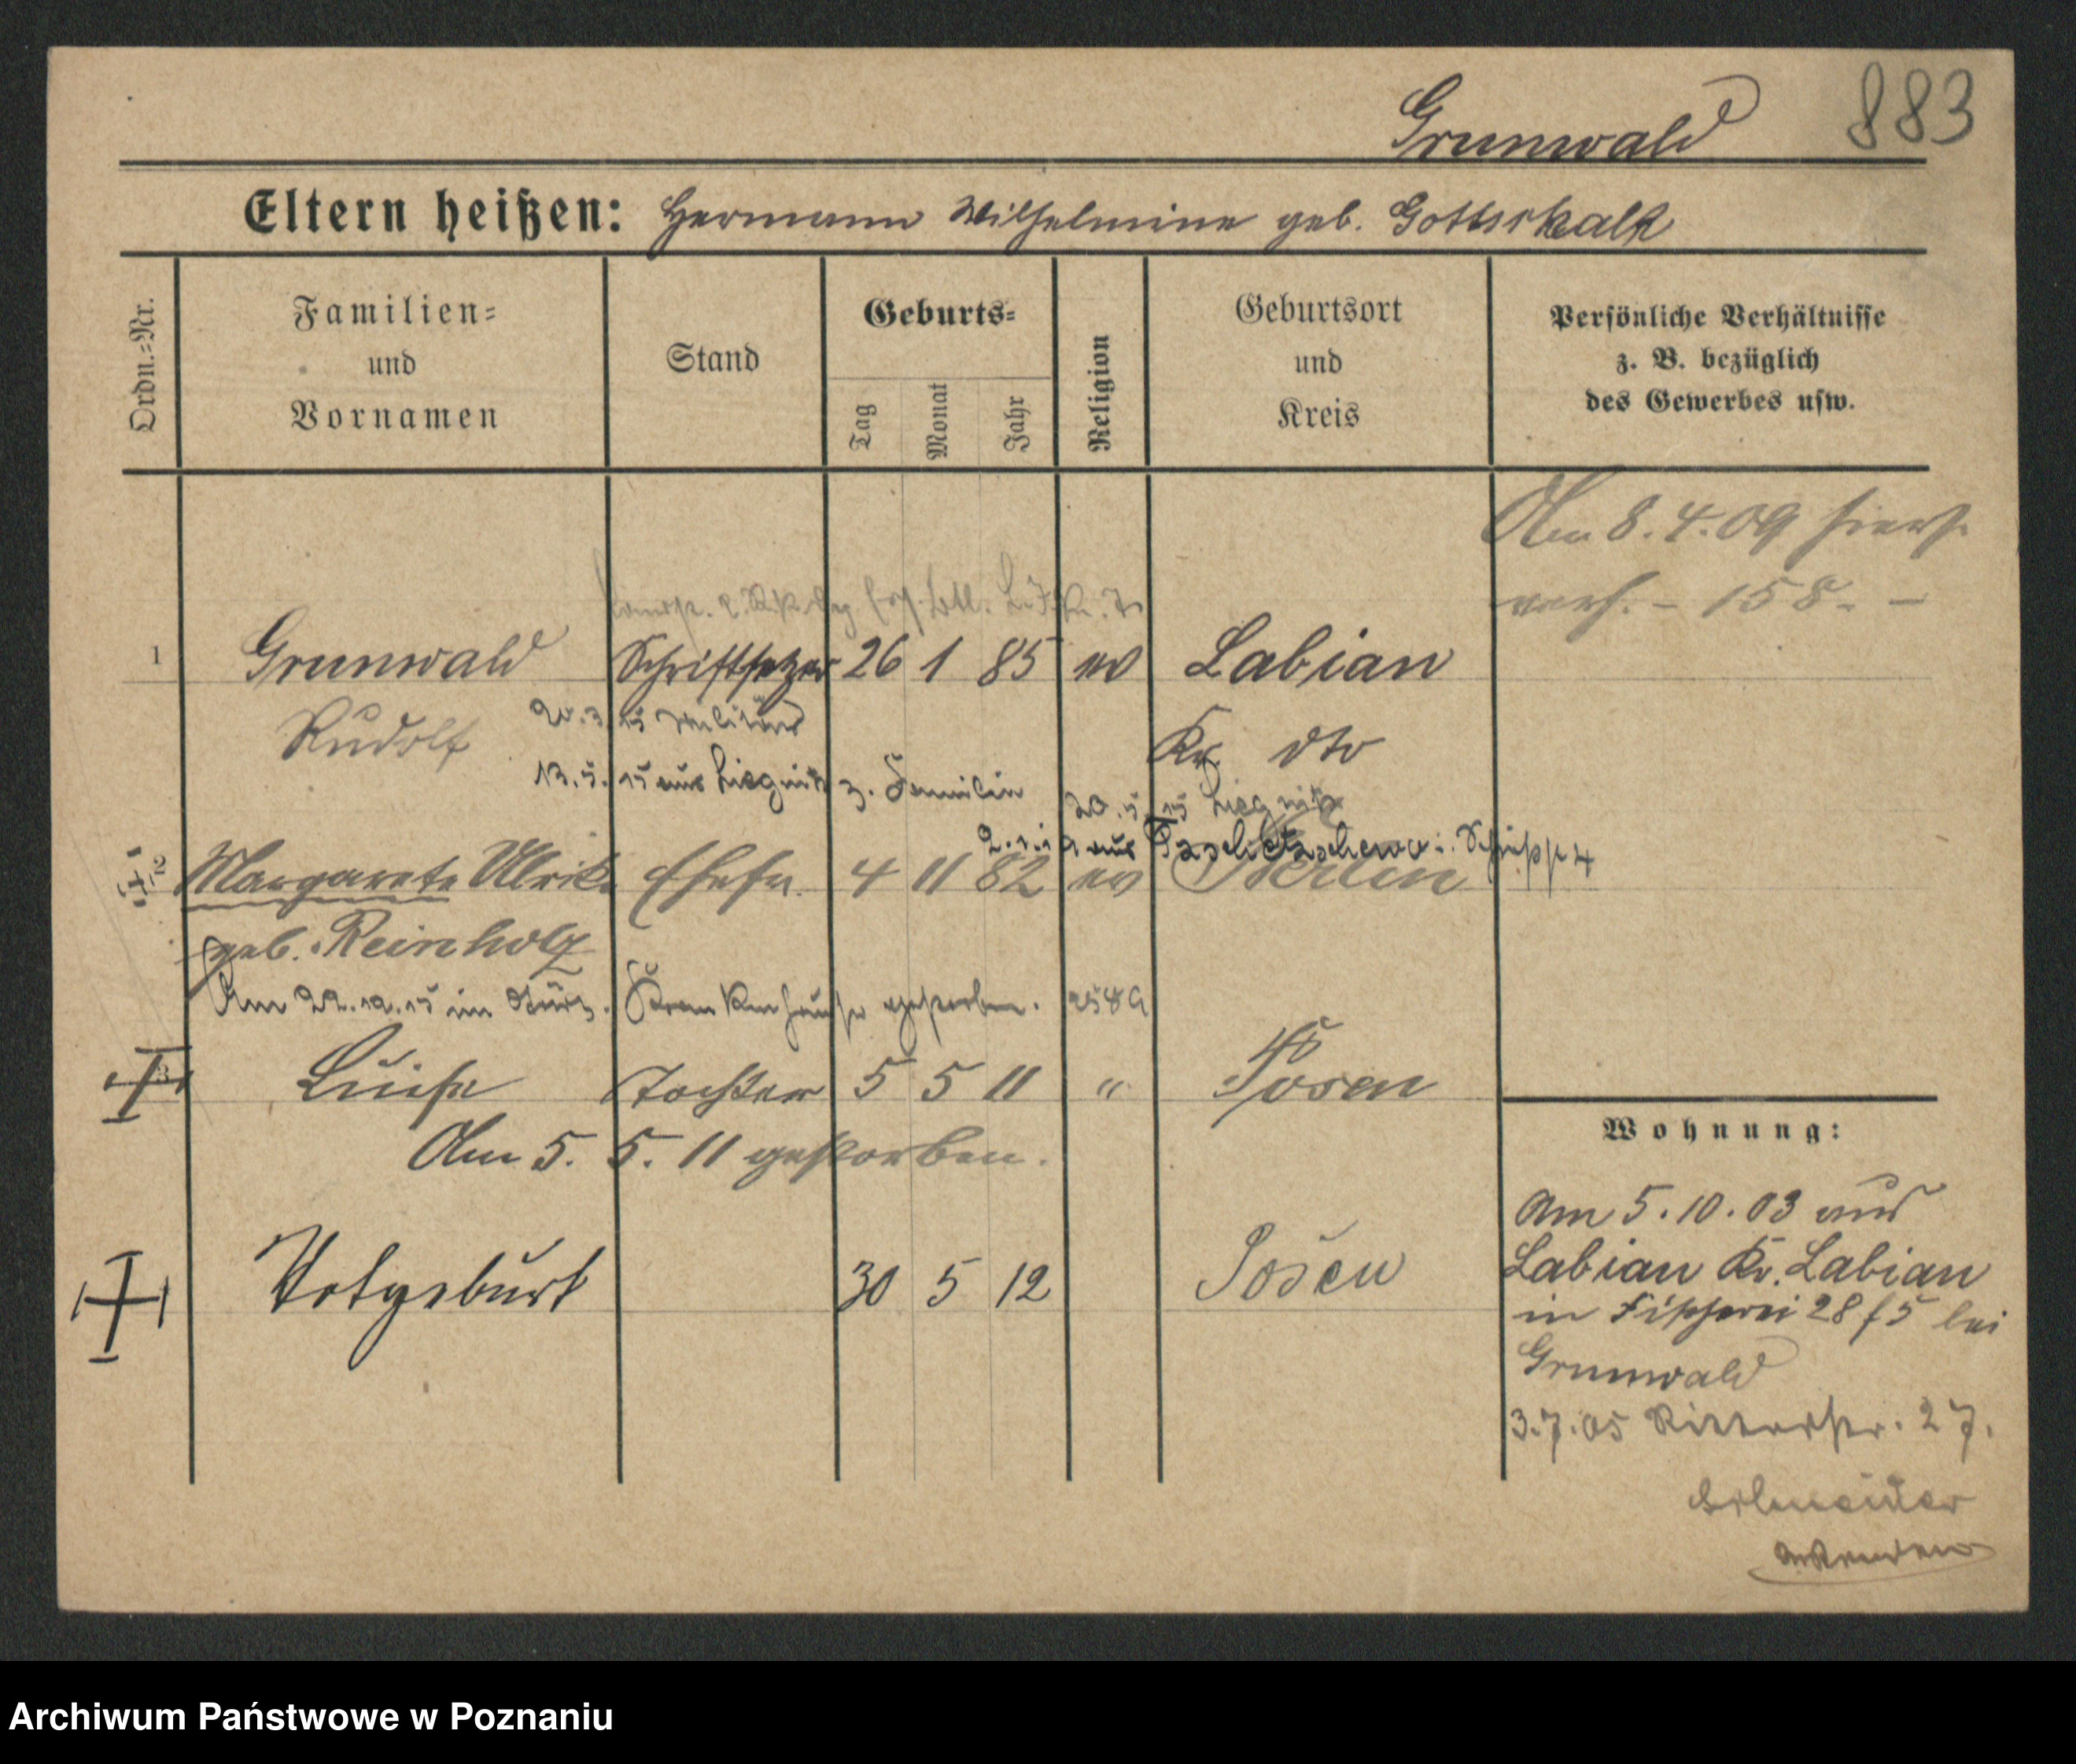 Grunwald 883
Eltern heißen: Hermann Wilhelmine geb. Gottschalk
Ordn.=Nr.
Familien=
und
Vornamen
Stand
Geburts=
Tag
Monat
Jahr
Religion
Geburtsort
und
Kreis
Persönliche Verhältnisse
z. B. bezüglich
des Gewerbes usw.
Am 8.4.09 hiers.
verh. - 158. -
1 Grunwald Schriftsetzer 26 1 85 ev Labian
Rudolf
15 Militär
Kr. dto
13.5.15 aus Liegnitz z. Familie
20.5.15 Liegnitz
aus
2 Margarete Ulrike Ehefr. 4 11 82 ev Berlin
geb. Reinholz
Am 22.12.15 im Krankenhause gestorben.
3 Luise Tochter 5 5 11 " Posen
Am 5. 5. 11 gestorben.
Totgeburt 30 5 12 Posen
Wohnung:
Am 5.10.03 aus
Labian Kr. Labian
in Fischerei 28 f 5 bei
Grunwald
3.7.05 Ritterstr. 27.
Schneider
Archiwum Państwowe w Poznaniu